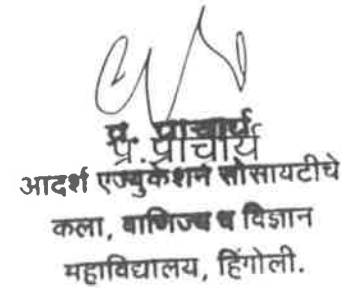 प्र. प्राचार्य
आदर्श एज्युकेशन सोसायटीचे
कला, वाणिज्य व विज्ञान
महाविद्यालय, हिंगोली.